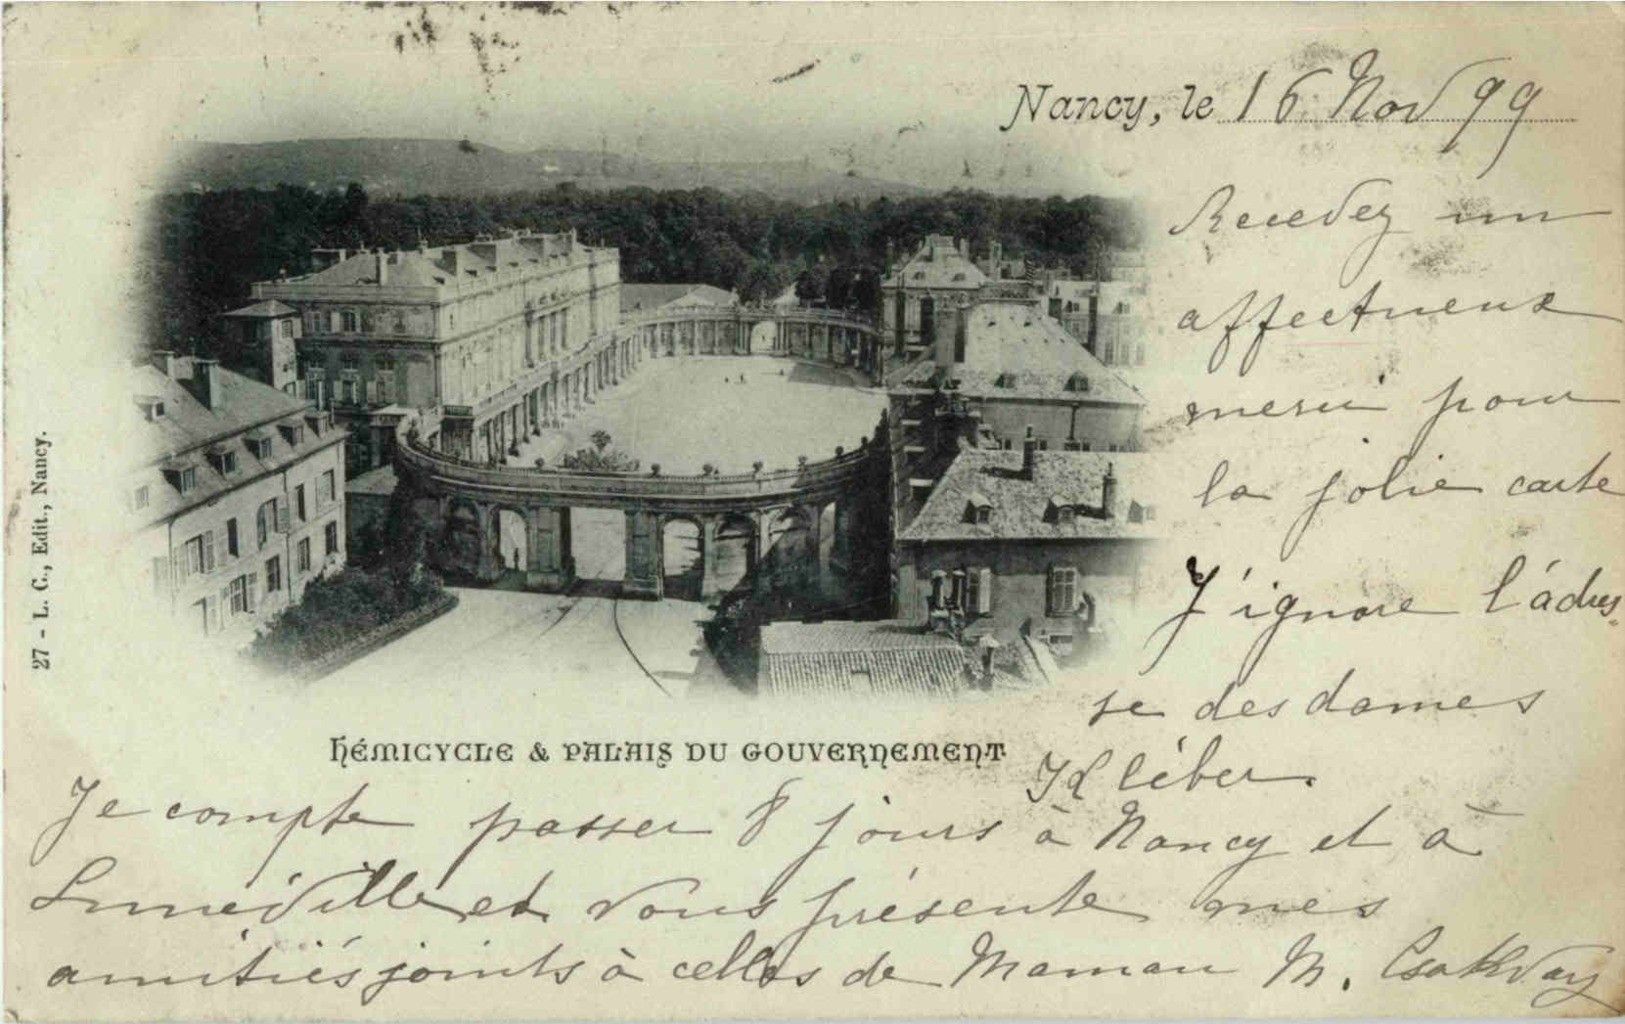 Nancy, le 16 Nov 99
Recevez un
affectueux
merci pour
la jolie carte
J'ignore l'adres-
se des dames
Kléber.
27 - L. C., Edit., Nancy.
HÉMICYCLE & PALAIS DU GOUVERNEMENT
Je compte passer 8 jours à Nancy et à
Lunéville et vous présente mes
amitiés joints à celles de Maman M.